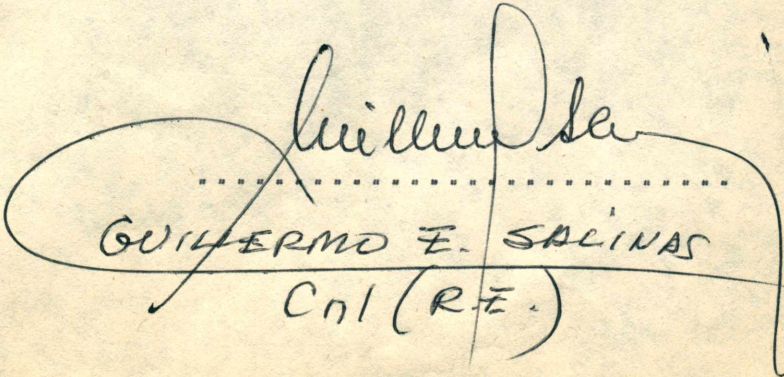 Guillermo Sal
GUILLERMO E. SALINAS
Cnl (R.E.)